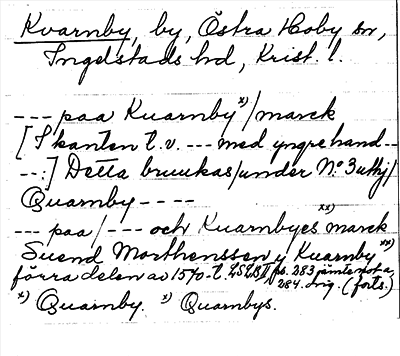 Kvarnby, by, Östra Hoby sn,
Ingelstads hd, Krist. l.
--- paa Kuarnby x)/marck
[I kanten t.v. --- med yngre hand --
--:] Detta bruukas/under No 3 uthj/
Quarnby ----
--- paa/--- och Kuarnbyes xx) marck
Suend Morthenssen y Kuarnby xx)
förra delen av 1570-t. s. 283 jämte not o.
284. orig. (forts.)
x) Quarnby. x) Quarnbys.